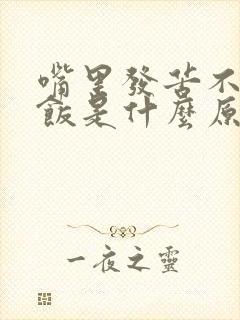 嘴里發苦不
飯是什麼原
一夜之靈